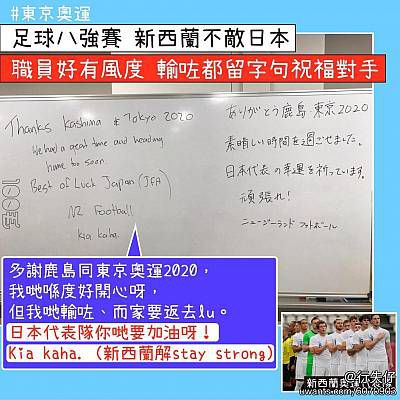 #東京奧運
足球八強賽 新西蘭不敵日本
職員好有風度 輸咗都留字句祝福對手
Thanks Kashima & Tokyo 2020
We had a great time and heading
home too soon.
Best of Luck Japan (JFA)
NZ Football
kia kaha.
ありがとう鹿島 東京2020
素晴しい時間を過ごせました。
日本代表の幸運を祈っています。
頑張れ!
ニュージーランド フットボール
多謝鹿島同東京奧運2020，
我哋喺度好開心呀，
但我哋輸咗、而家要返去lu。
日本代表隊你哋要加油呀！
Kia kaha. (新西蘭解stay strong)
新西蘭奧運八強隊
@行先仔